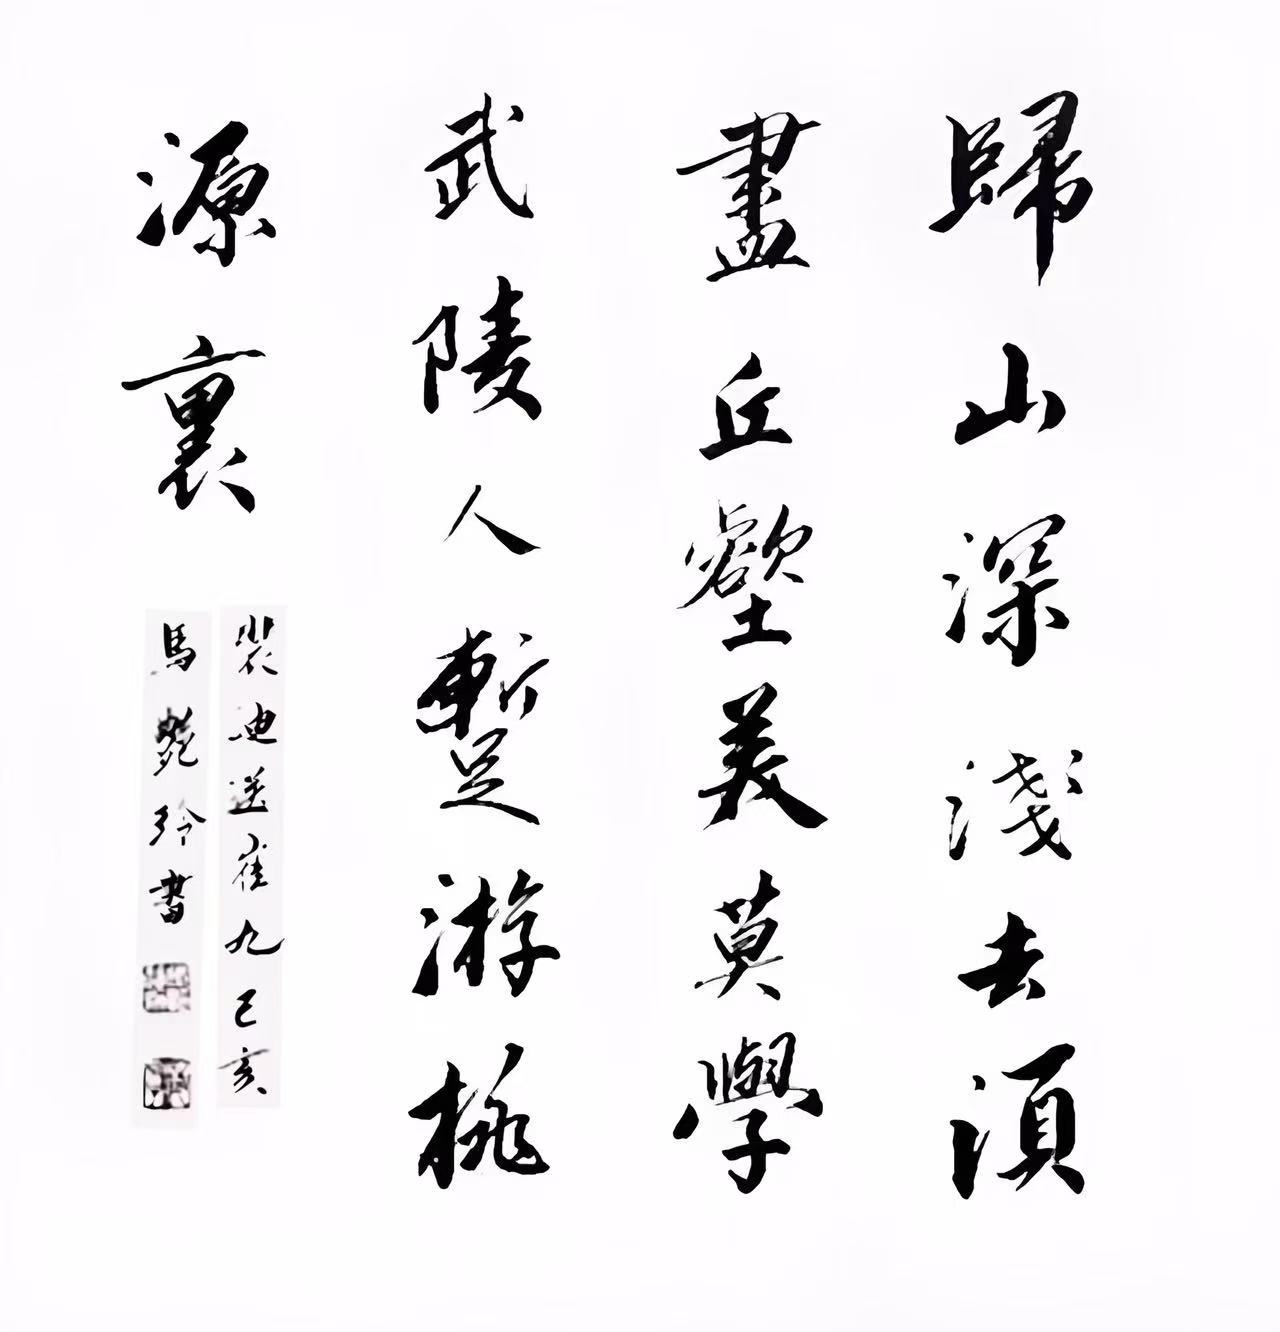 歸山深淺去須
盡丘壑美莫學
武陵人暫游桃
源裏
裴迪送崔九己亥
馬艷玲書